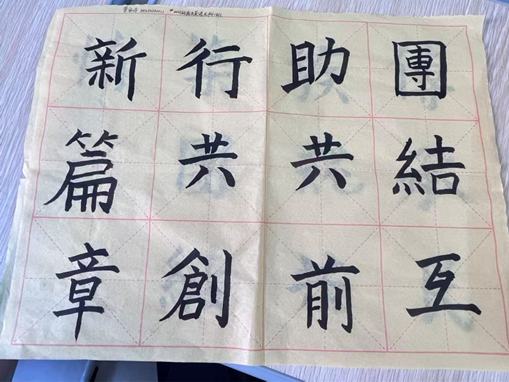 團結互
助共前
行共創
新篇章